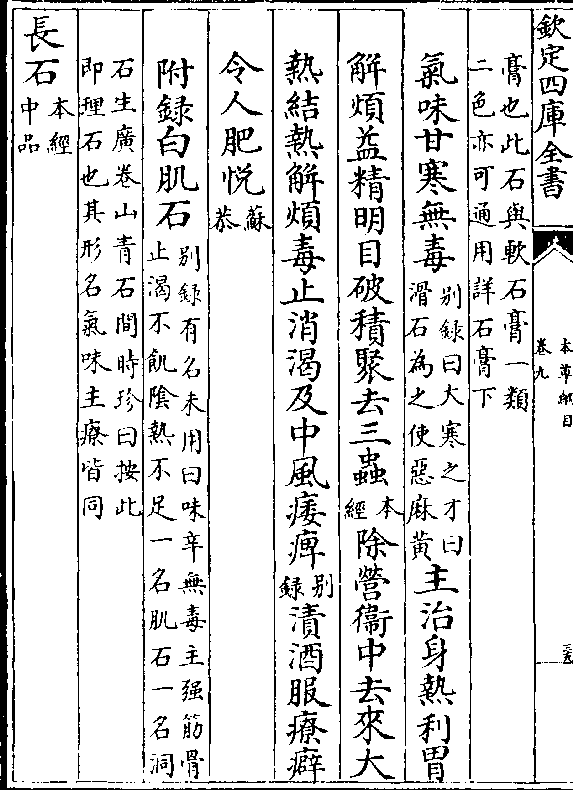 欽定四庫全書
本草綱目
卷九
膏也此石與軟石膏一類
二色亦可通用詳石膏下
氣味甘寒無毒
别録曰大寒之才曰
滑石為之使惡麻黄
主治身熱利胃
解煩益精明目破積聚去三蟲
本
經
除營衞中去來大
熱結熱解煩毒止消渴及中風痿痺
别
録
漬酒服療癖
令人肥悦
蘇
恭
附録白肌石
别録有名未用曰味辛無毒主强筋骨
止渴不飢陰熱不足一名肌石一名洞
石生廣卷山青石間時珍曰按此
即理石也其形名氣味主療皆同
長石
本經
中品